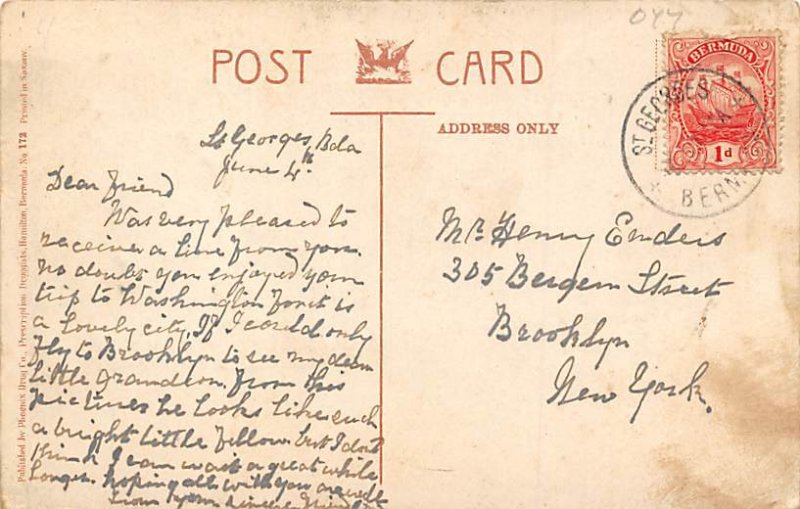 044
POST CARD
ADDRESS ONLY
BERMUDA
1d
ST. GEORGES
BERM
Published by Phoenix Drug Co., Prescription Druggists, Hamilton, Bermuda. No 172 Printed in Saxony.
St Georges, Bda
June 4th
Dear Friend
Was very pleased to
receive a line from you.
no doubt you enjoyed your
trip to Washington for it is
a lovely city. If I could only
fly to Brooklyn to see my dear
little Grandson. From his
pictures he looks like such
a bright little fellow but I dont
think I can wait a great while
longer. hoping all with you are well
from your sincere friend
Mr. Henry Enders
305 Bergen Street
Brooklyn
New York.